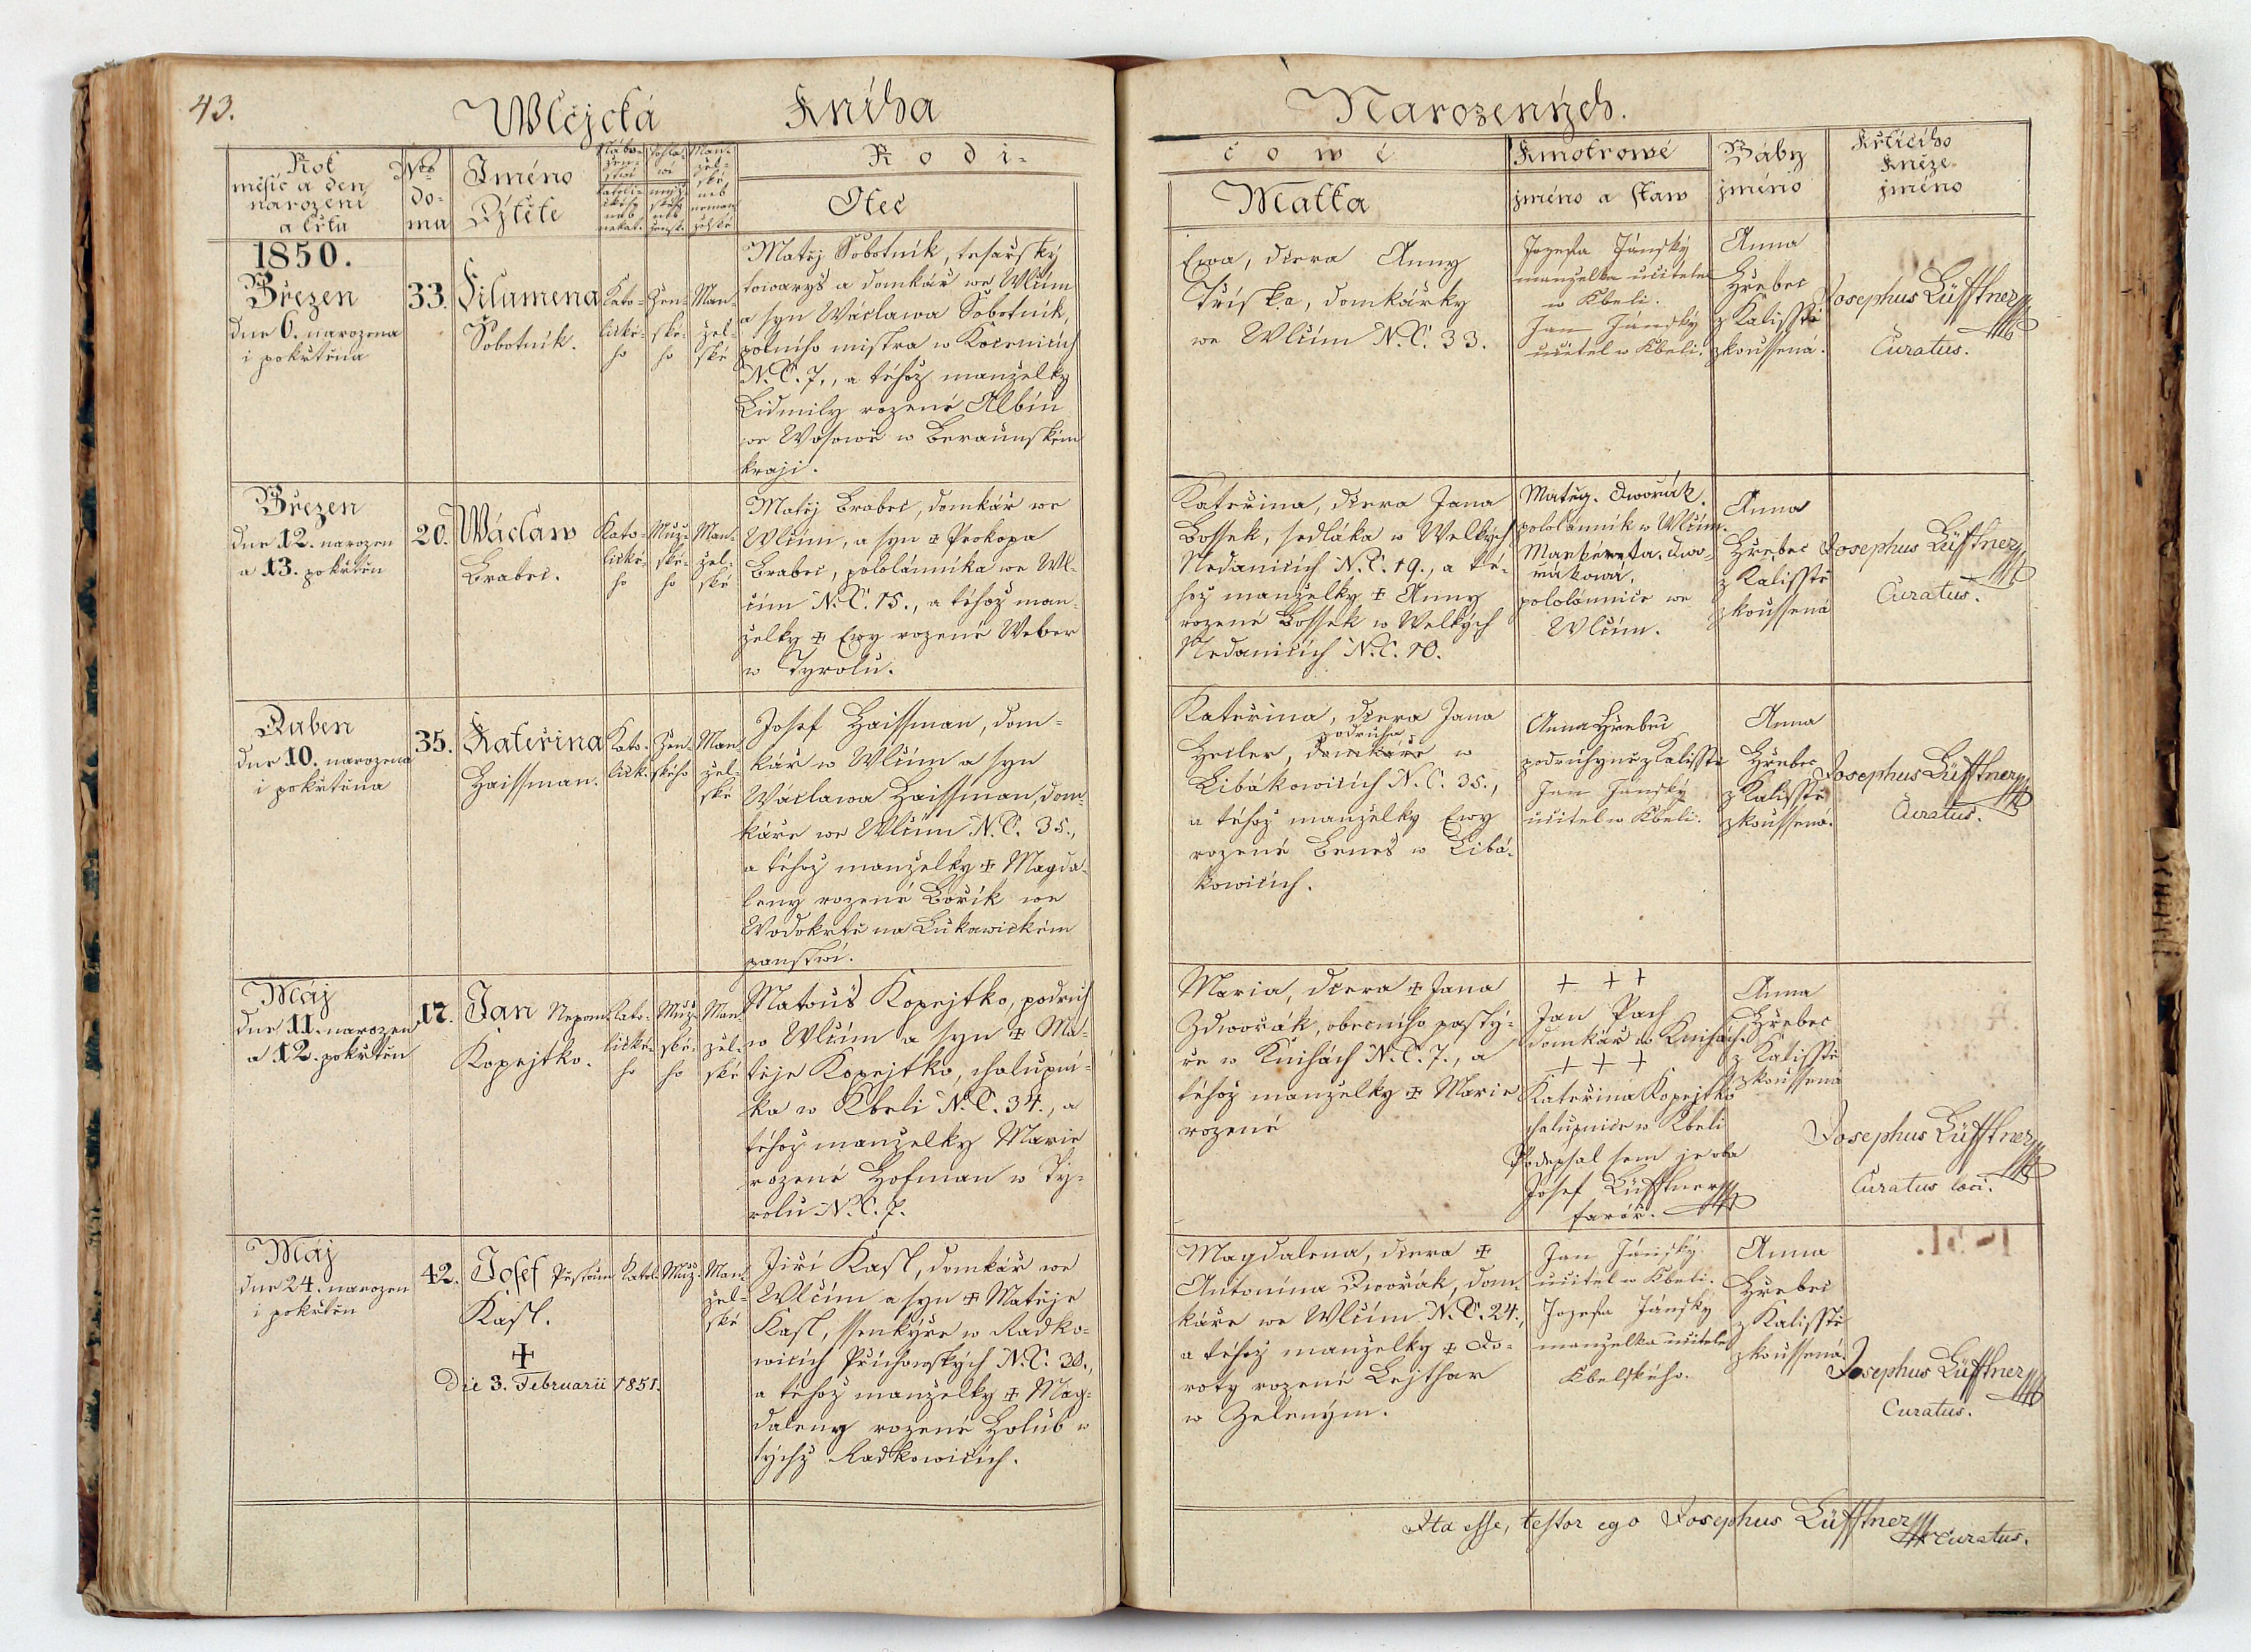 43.
Wlčjcká Kniha Narozených.
Rok
měsíc a den
narození
a křtu
Nro
do-
mu
Jméno
Djtěte
Nábo-
žen-
stwí
katoli-
ckého
neb
nekat.
Pohla-
wí
mužs-
kého
neb
žensk.
Man-
žel-
ské
neb
neman-
želské
Rodi-
Otec
cowé
Matka
Kmotrowé
jméno a staw
Báby
jméno
Křtícího
kněze
jméno
1850.
Březen
dne 6. narozena
i pokřtěna
33.
Filumena
Sobotník.
Kato-
lické-
ho
Žen-
ské-
ho
Man-
žel-
ské
Matěj Sobotník, tesařský
towaryš a domkář we Wlčím
a syn Wáclawa Sobotník,
polního mistra w Kocenicích
N.C. 7., a téhož manželky
Lidmily rozené Albín
we Wosowě w Beraunském
kraji.
Ewa, dcera Anny
Tříska, domkářky
we Wlčím N.C. 33.
Jozefa Jánský
manželka učitele
w Kbeli.
Jan Jánský
učitel w Kbeli.
Anna
Hřebec
z Kalisstě
zkoussená.
Josephus Lüfftner
Curatus.
Březen
dne 12. narozen
a 13. pokřtěn
20.
Wáclaw
Brabec.
Kato-
lické-
ho
Muž-
ské-
ho
Man-
žel-
ské
Matěj Brabec, domkář we
Wlčím, a syn + Prokopa
Brabec, pololánníka we Wl-
čím N.C. 15., a téhož man-
želky + Ewy rozené Weber
w Tyrolu.
Kateřina, dcera Jana
Bossek, sedláka w Welkých
Nedanicích N.C. 19., a té-
hož manželky + Anny
rozené Bossek w Welkých
Nedanicích N.C. 10.
Matěg. Dwořák.
pololánník w Wlčím.
Markéreta. Dwo-
rákowá.
pololánnice we
Wlčím.
Anna
Hřebec
z Kalisstě
zkoussená
Josephus Lüfftner
Curatus.
Duben
dne 10. narozena
i pokřtěna
35.
Kateřina
Haissman.
Kato-
lick.
Žen-
ského
Man-
žel-
ské
Josef Haissman, dom-
kář w Wlčím a syn
Wáclawa Haissman, dom-
káře we Wlčím N.C. 35.,
a téhož manželky + Magda-
leny rozené Bořík we
Wodokrtě na Lukawickém
panstwí.
Kateřina, dcera Jana
podruha
Heiler, domkáře w
Libákowicích N.C. 35.,
a téhož manželky Ewy
rozené Beneš w Libá-
kowicích.
Anna Hřebec
podruhyně z Kalisstě
Jan Jánský
učitel w Kbeli.
Anna
Hřebec
z Kalisstě
zkoussená.
Josephus Lüfftner
Curatus.
Máj
dne 11. narozen
a 12. pokřtěn
17.
Jan Nepom.
Kopejtko.
Kato-
lické-
ho
Muž-
ské-
ho
Man-
žel-
ské
Matouš Kopejtko, podruh
w Wlčím a syn + Ma-
těje Kopejtko, chalupní-
ka w Kbeli N.C. 34., a
téhož manželky Marie
rozené Hofman w Ty-
rolu N.C. 7.
Maria, dcera + Jana
Zdwořák, obecního pastý-
ře w Knihách N.C. 7., a
téhož manželky + Marie
rozené
+ + +
Jan Pach
domkář w Knihách.
+ + +
Kateřina Kopejtko
chalupnice w Kbeli
Podepsal sem je oba
Josef Lüfftner
farář.
Anna
Hřebec
z Kalisstě
zkoussená
Josephus Lüfftner
Curatus loci.
Máj
dne 24. narozen
i pokřtěn
42.
Josef
Kasl.
+
Die 3. Februarii 1851.
Katol.
Muž.
Man-
žel-
ské
Jiří Kasl, domkář we
Wlčím a syn + Matěje
Kasl, ssenkýře w Radko-
wicích Příchowských N.C. 30.,
a téhož manželky + Mag-
daleny rozené Holub w
týchž Radkowicích.
Magdalena, dcera +
Antonína Dwořák, dom-
káře we Wlčím N.C. 24.,
a téhož manželky + Do-
roty rozené Lejthar
w Zeleným.
Jan Jánský
učitel w Kbeli.
Jozefa Jánský
manželka učitele
Kbelského.
Anna
Hřebec
z Kalisstě
zkoussená.
Josephus Lüfftner
Curatus.
Ita esse, testor ego Josephus Lüfftner
Curatus.